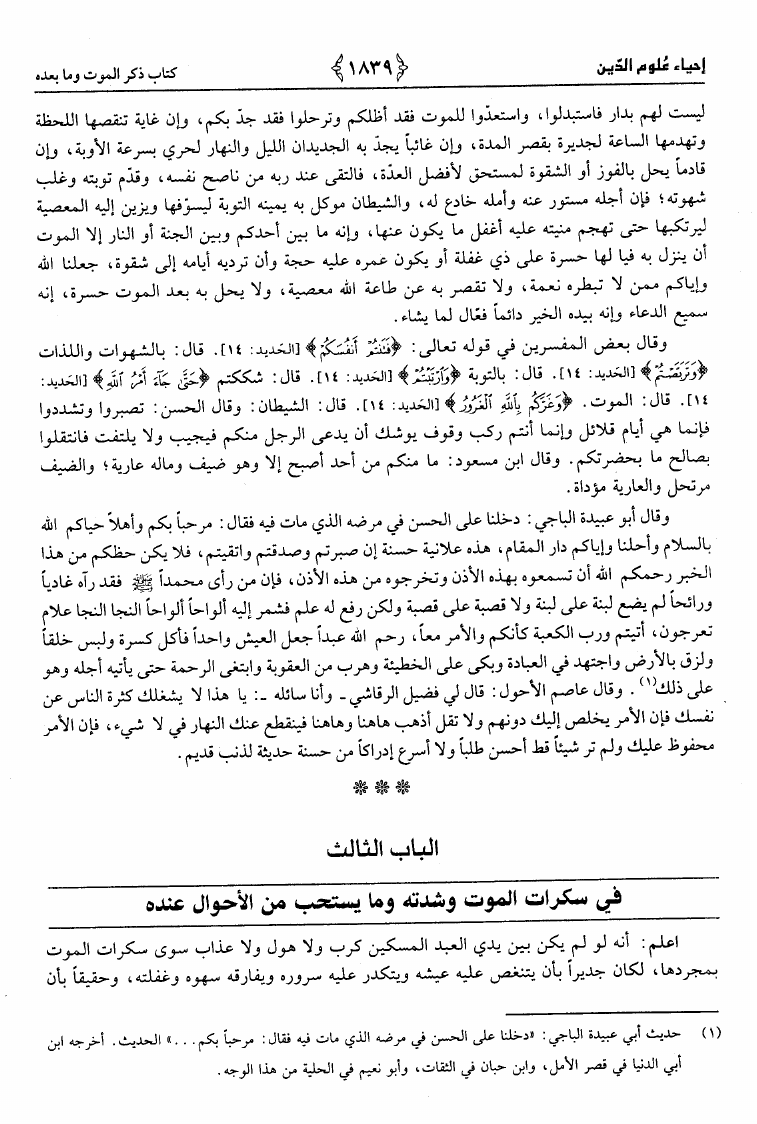 إحياء عُلوم الدّين
﴿١٨٣٩﴾
كتاب ذكر الموت وما بعده
ليست لهم بدار فاستبدلوا، واستعدّوا للموت فقد أظلكم وترحلوا فقد جدّ بكم، وإن غاية تنقصها اللحظة
وتهدمها الساعة لجديرة بقصر المدة، وإن غائباً يجدّ به الجديدان الليل والنهار لحري بسرعة الأوبة، وإن
قادماً يحل بالفوز أو الشقوة لمستحق لأفضل العدّة، فالتقى عند ربه من ناصح نفسه، وقدّم توبته وغلب
شهوته؛ فإن أجله مستور عنه وأمله خادع له، والشيطان موكل به يمينه التوبة ليسوّفها ويزين إليه المعصية
ليرتكبها حتى تهجم منيته عليه أغفل ما يكون عنها، وإنه ما بين أحدكم وبين الجنة أو النار إلا الموت
أن ينزل به فيا لها حسرة على ذي غفلة أو يكون عمره عليه حجة وأن ترديه أيامه إلى شقوة، جعلنا الله
وإياكم ممن لا تبطره نعمة، ولا تقصر به عن طاعة الله معصية، ولا يحل به بعد الموت حسرة، إنه
سميع الدعاء وإنه بيده الخير دائماً فعّال لما يشاء.
وقال بعض المفسرين في قوله تعالى: ﴿فَتَنتُمْ أَنفُسَكُمْ﴾ [الحَديد: ١٤]. قال: بالشهوات واللذات
﴿وَتَرَبَّصْتُمْ﴾ [الحَديد: ١٤]. قال: بالتوبة ﴿وَٱرْتَبْتُمْ﴾ [الحَديد: ١٤]. قال: شككتم ﴿حَتَّىٰ جَآءَ أَمْرُ ٱللَّهِ﴾ [الحَديد:
١٤]. قال: الموت. ﴿وَغَرَّكُم بِٱللَّهِ ٱلْغَرُورُ﴾ [الحَديد: ١٤]. قال: الشيطان: وقال الحسن: تصبروا وتشددوا
فإنما هي أيام قلائل وإنما أنتم ركب وقوف يوشك أن يدعى الرجل منكم فيجيب ولا يلتفت فانتقلوا
بصالح ما بحضرتكم. وقال ابن مسعود: ما منكم من أحد أصبح إلا وهو ضيف وماله عارية؛ والضيف
مرتحل والعارية مؤداة.
وقال أبو عبيدة الباجي: دخلنا على الحسن في مرضه الذي مات فيه فقال: مرحباً بكم وأهلاً حياكم الله
بالسلام وأحلنا وإياكم دار المقام، هذه علانية حسنة إن صبرتم وصدقتم واتقيتم، فلا يكن حظكم من هذا
الخبر رحمكم الله أن تسمعوه بهذه الأذن وتخرجوه من هذه الأذن، فإن من رأى محمداً ﷺ فقد رآه غادياً
ورائحاً لم يضع لبنة على لبنة ولا قصبة على قصبة ولكن رفع له علم فشمر إليه ألواحاً ألواحاً النجا النجا علام
تعرجون، أتيتم ورب الكعبة كأنكم والأمر معاً، رحم الله عبداً جعل العيش واحداً فأكل كسرة ولبس خلقاً
ولزق بالأرض واجتهد في العبادة وبكى على الخطيئة وهرب من العقوبة وابتغى الرحمة حتى يأتيه أجله وهو
على ذلك(١). وقال عاصم الأحول: قال لي فضيل الرقاشي - وأنا سائله -: يا هذا لا يشغلك كثرة الناس عن
نفسك فإن الأمر يخلص إليك دونهم ولا تقل أذهب هاهنا وهاهنا فينقطع عنك النهار في لا شيء، فإن الأمر
محفوظ عليك ولم تر شيئاً قط أحسن طلباً ولا أسرع إدراكاً من حسنة حديثة لذنب قديم.
* * *
الباب الثالث
في سكرات الموت وشدته وما يستحب من الأحوال عنده
اعلم: أنه لو لم يكن بين يدي العبد المسكين كرب ولا هول ولا عذاب سوى سكرات الموت
بمجردها، لكان جديراً بأن يتنغص عليه عيشه ويتكدر عليه سروره ويفارقه سهوه وغفلته، وحقيقاً بأن
(١) حديث أبي عبيدة الباجي: «دخلنا على الحسن في مرضه الذي مات فيه فقال: مرحباً بكم...» الحديث. أخرجه ابن
أبي الدنيا في قصر الأمل، وابن حبان في الثقات، وأبو نعيم في الحلية من هذا الوجه.